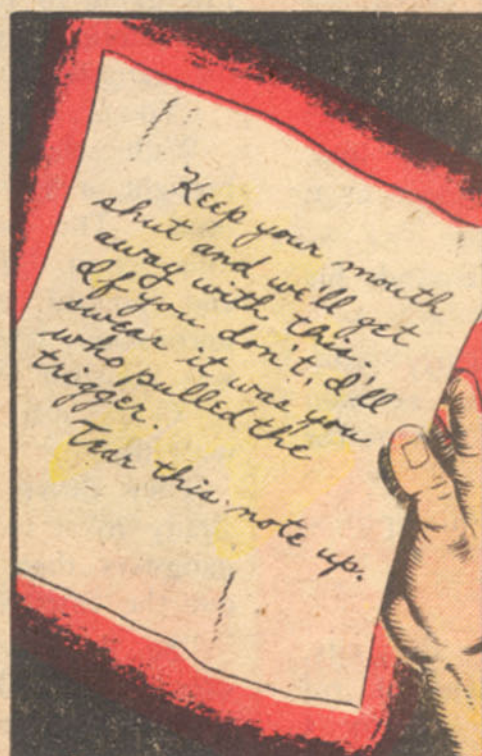 Keep your mouth
shut and we'll get
away with this.
If you don't, I'll
swear it was you
who pulled the
trigger.
Tear this note up.